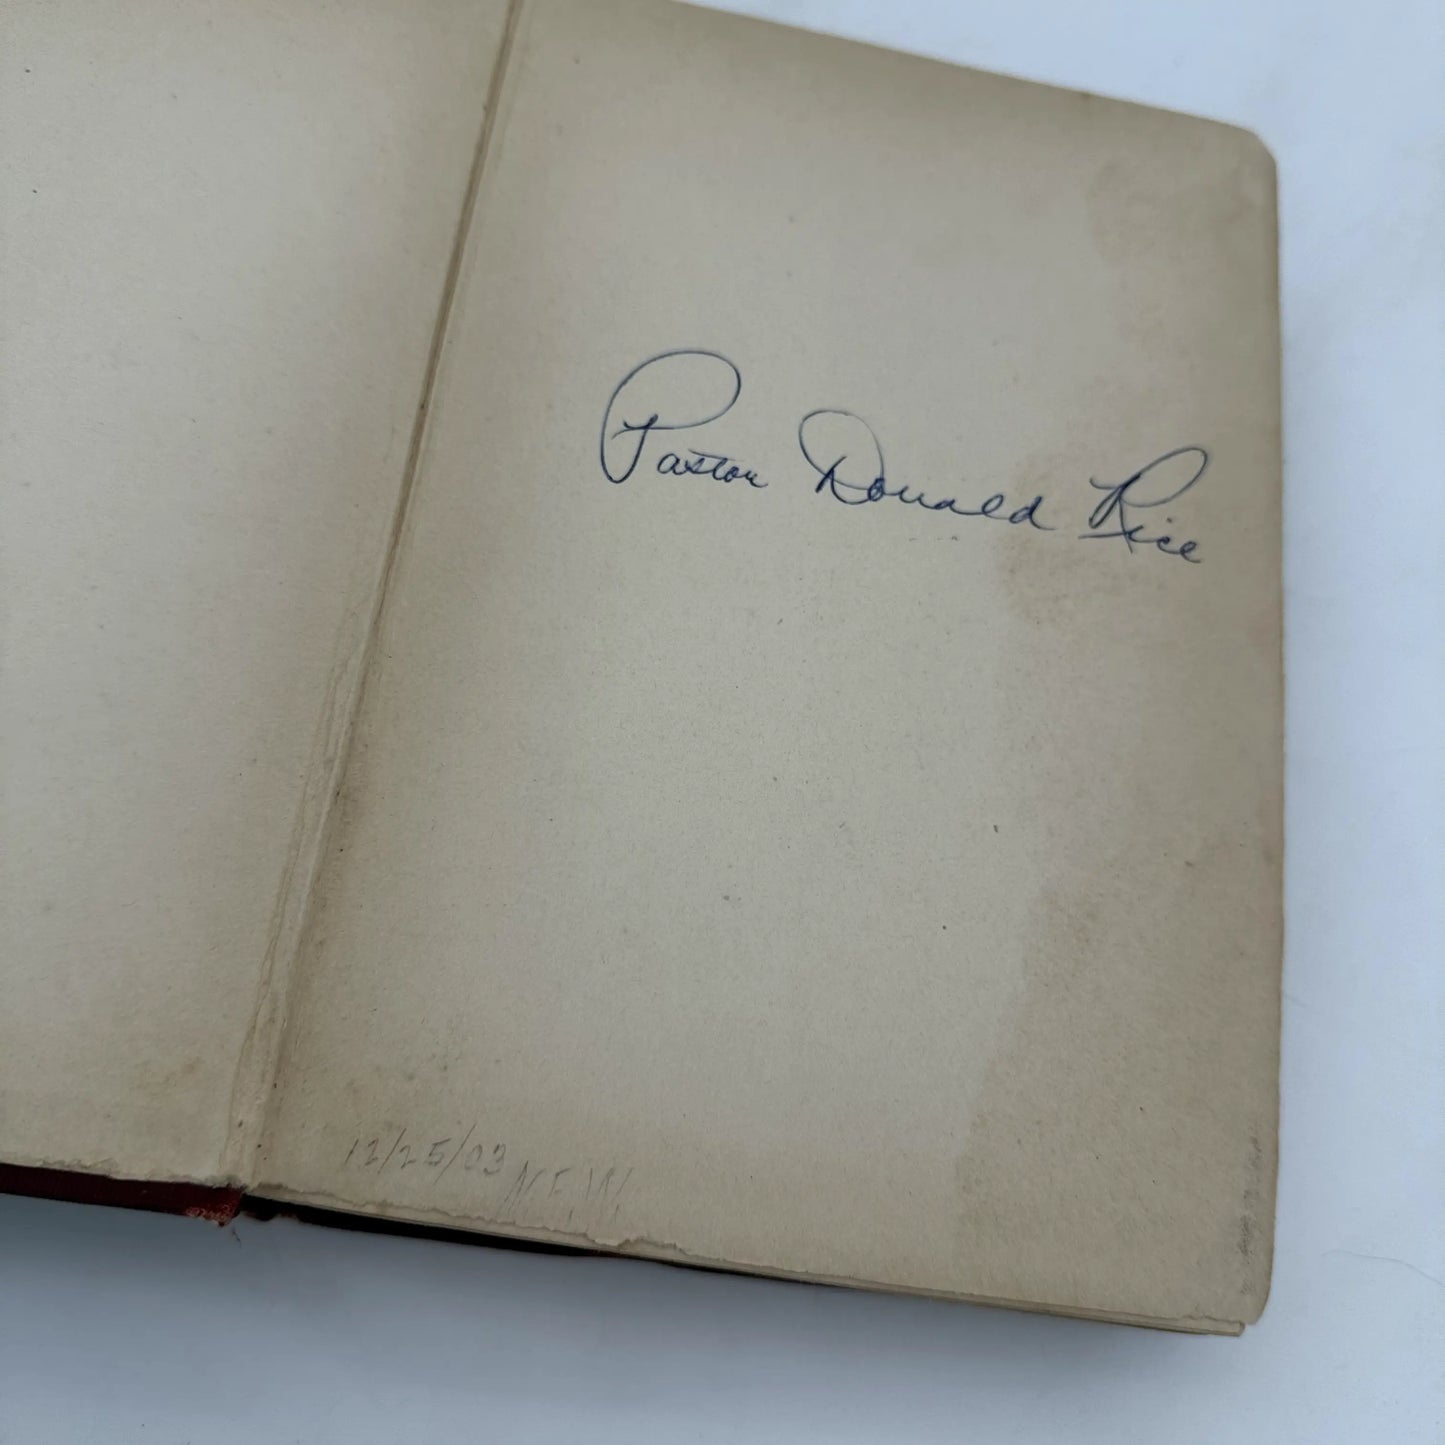 Pastor Donald Rice
12/25/03 NEW